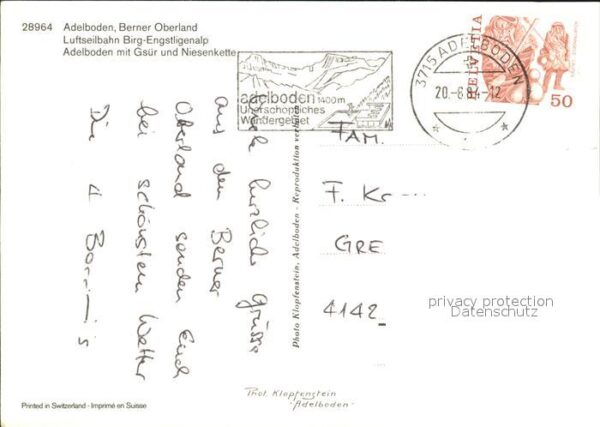 28964 Adelboden, Berner Oberland
Luftseilbahn Birg-Engstligenalp
Adelboden mit Gsür und Niesenkette
adelboden 1400m
Unerschöpfliches
Wandergebiet
3715 ADELBODEN
20.-6.84-12
HELVETIA
50
Viele herzliche Grüsse
aus dem Berner
Oberland senden Euch
bei schönstem Wetter
Die 4
Photo Klopfenstein, Adelboden - Reproduktion verboten
FAM.
F. Kr
GRE
4142
privacy protection
Datenschutz
Phot. Klopfenstein
-Adelboden-
Printed in Switzerland - Imprimé en Suisse